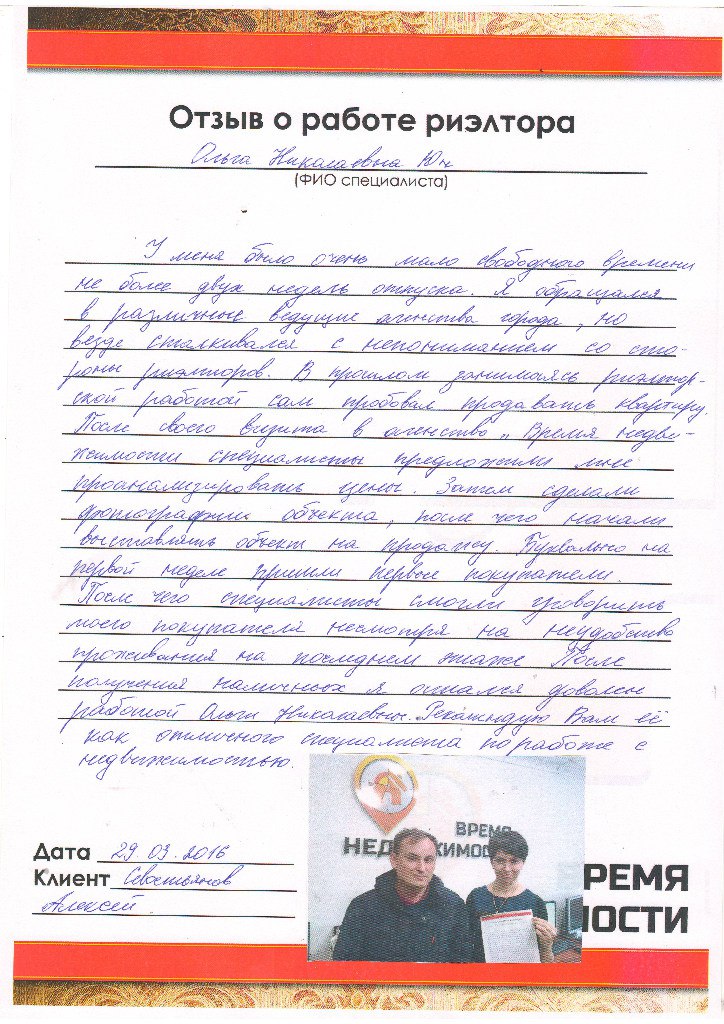 Отзыв о работе риэлтора
Ольга Николаевна Юн
(ФИО специалиста)
У меня было очень мало свободного времени
не более двух недель отпуска. Я обращался
в различные ведущие агенства города, но
везде сталкивался с непониманием со сто-
роны риэлторов. В прошлом занимаясь риэлтор-
ской работой сам пробовал продавать квартиру.
После своего визита в агенство „Время недви-
жимости специалисты предложили мне
проанализировать цены. Затем сделали
фотографии объекта, после чего начали
выставлять объект на продажу. Буквально на
первой неделе пришли первые покупатели.
После чего специалисты смогли уговорить
моего покупателя несмотря на неудобства
проживания на последнем этаже После
получения наличных я остался доволен
работой Ольги Николаевны. Рекомендую Вам её
как отличного специалиста по работе с
недвижимостью.
ВРЕМЯ
НЕДВИЖИМОСТИ
Дата 29.03.2016
Клиент Севостьянов
Алексей
ВРЕМЯ
ОСТИ